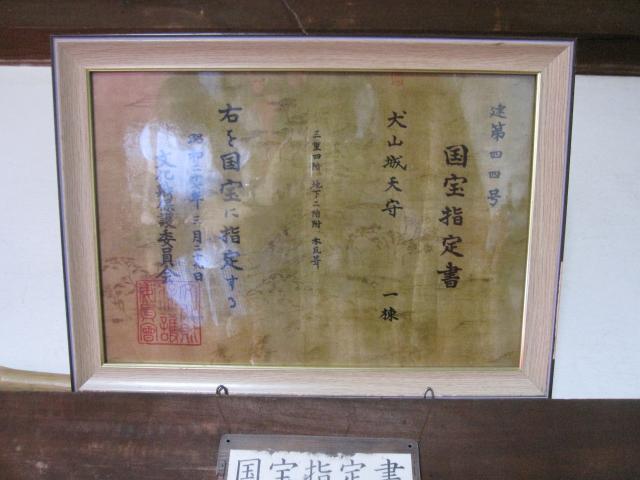 建第四四号
国宝指定書
犬山城天守 一棟
三重四階 地下二階附 本瓦葺
右を国宝に指定する
昭和二十七年三月二十九日
文化財保護委員会
国宝指定書